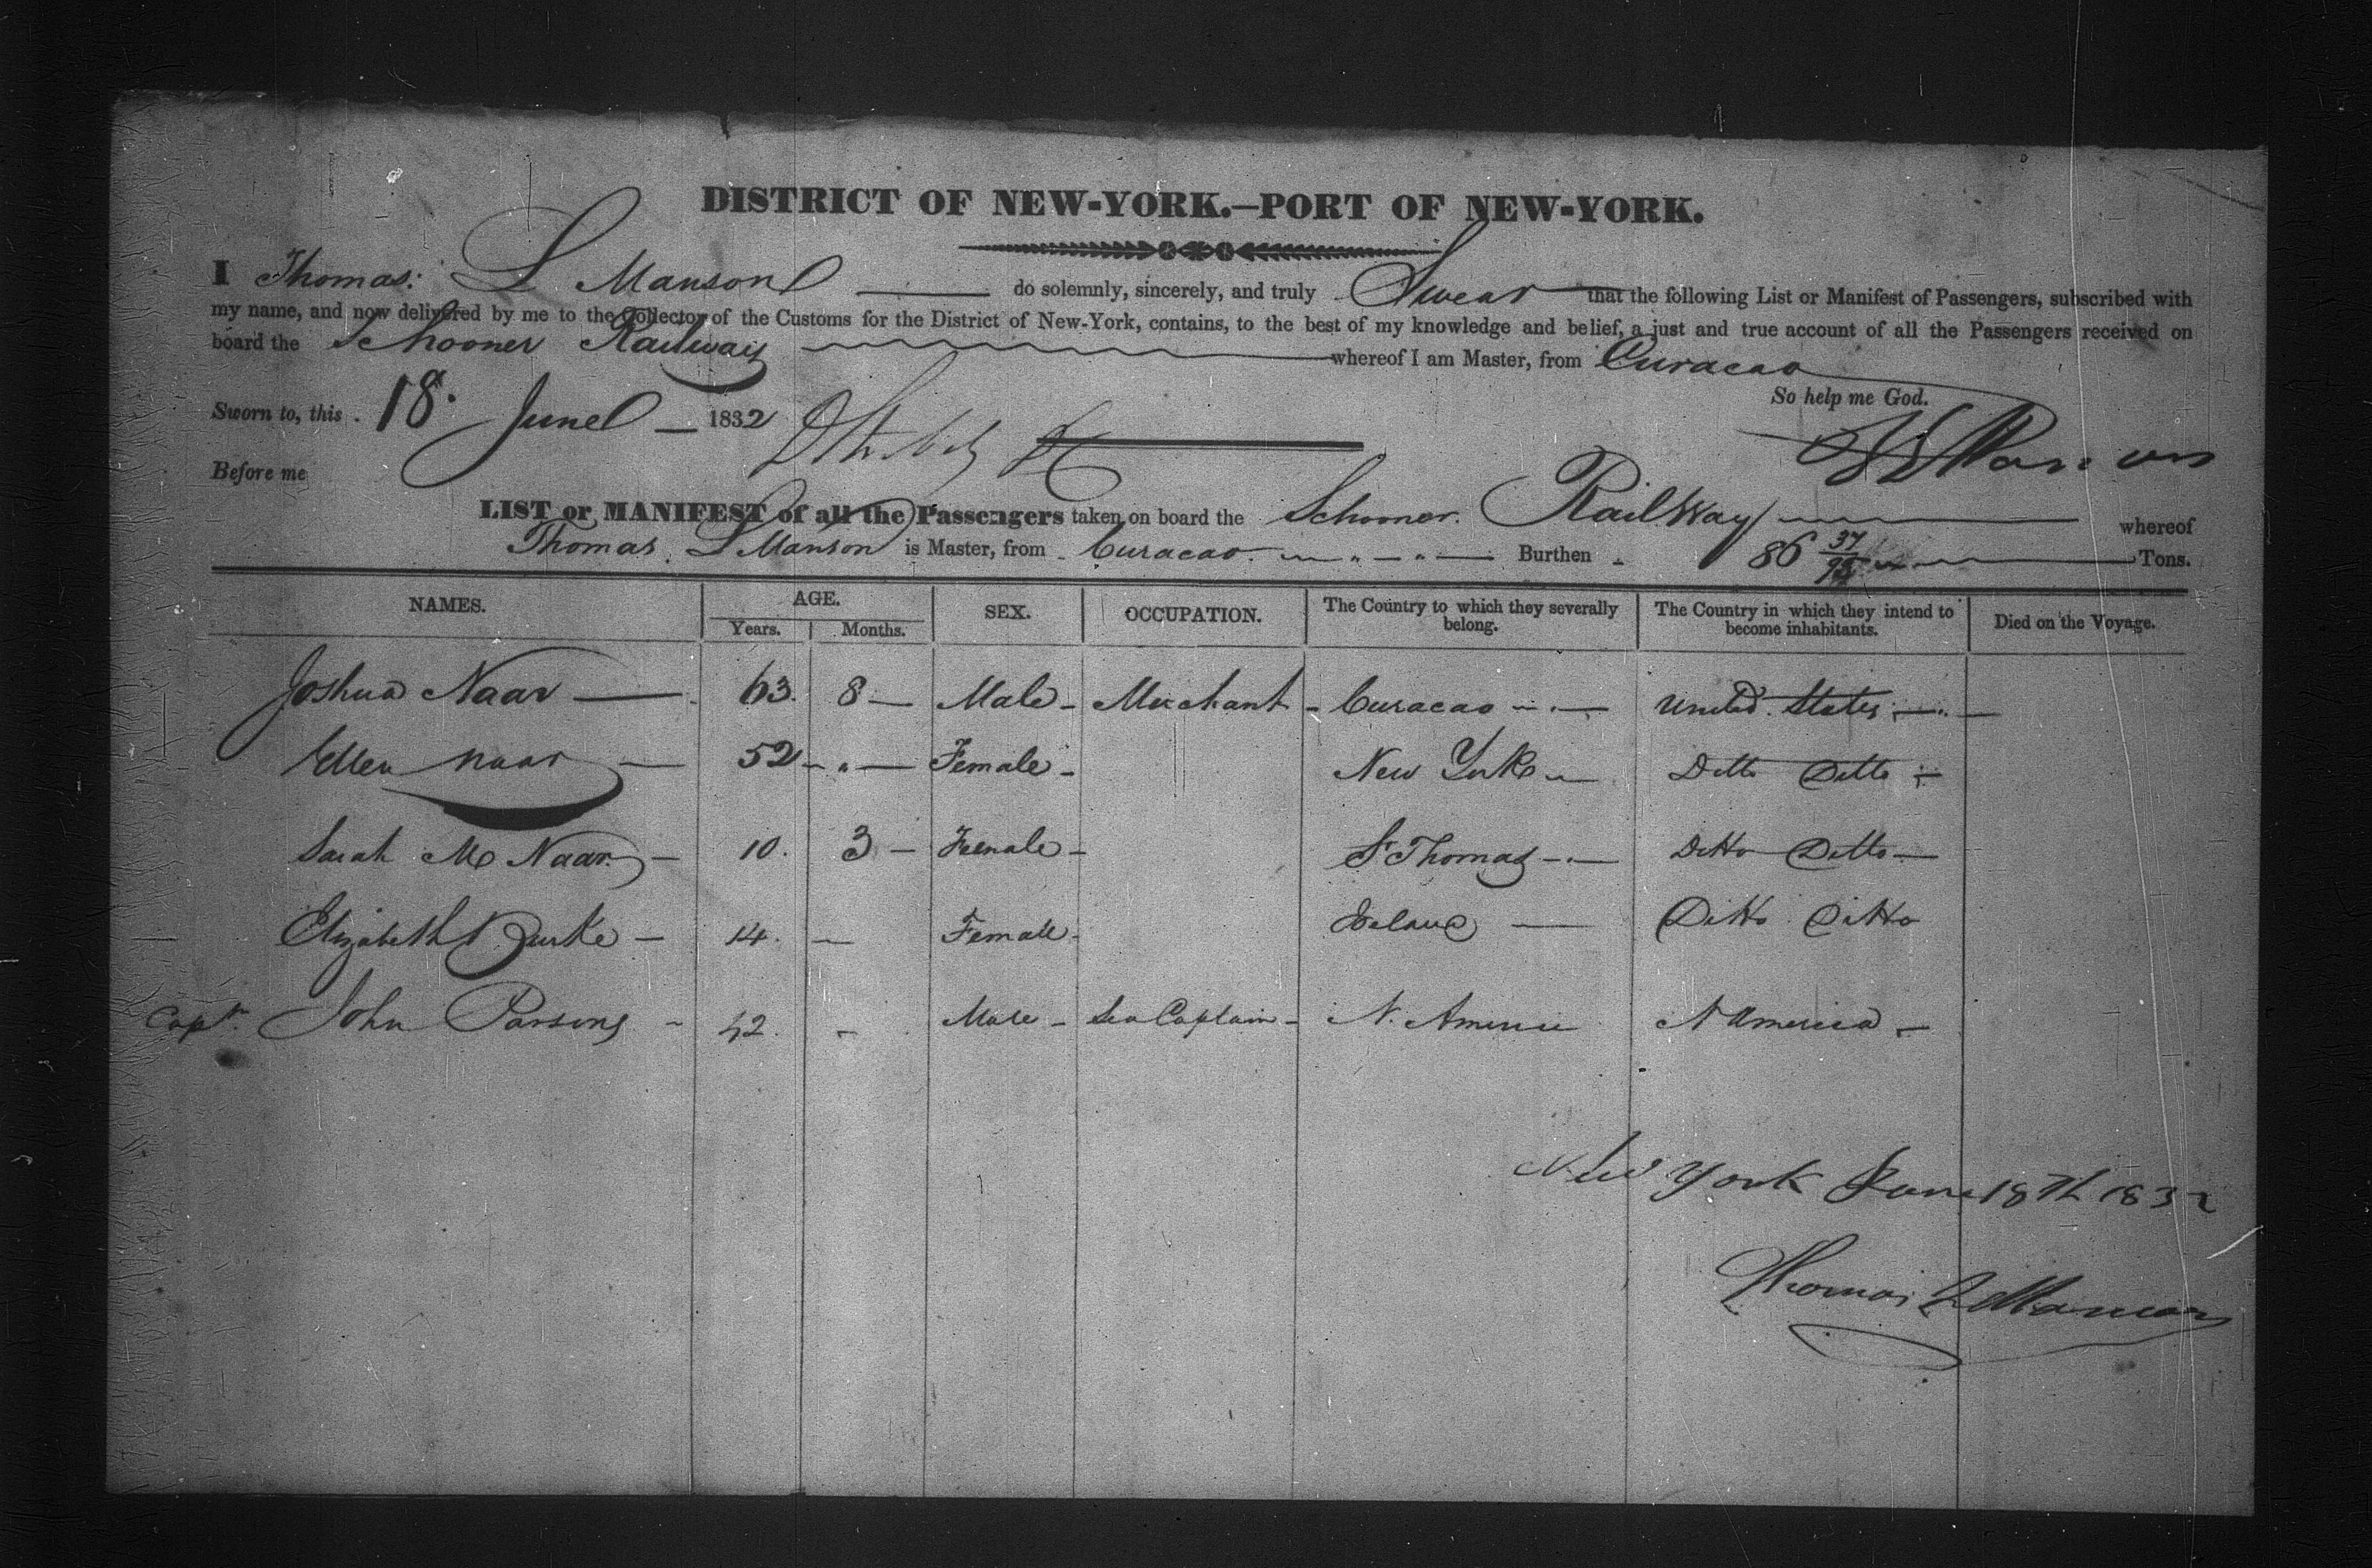 DISTRICT OF NEW-YORK.—PORT OF NEW-YORK.
I Thomas: L Manson do solemnly, sincerely, and truly Swear that the following List or Manifest of Passengers, subscribed with
my name, and now delivered by me to the Collector of the Customs for the District of New-York, contains, to the best of my knowledge and belief, a just and true account of all the Passengers received on
board the Schooner Railway whereof I am Master, from Curacao
So help me God.
Sworn to, this 18. June 1832
T L Manson
Before me
LIST or MANIFEST of all the Passengers taken on board the Schooner. Railway whereof
Thomas. L Manson is Master, from Curacao. Burthen 86 37/95 Tons.
NAMES. AGE. SEX. OCCUPATION. The Country to which they severally belong. The Country in which they intend to become inhabitants. Died on the Voyage.
Years. Months.
Joshua Naar — 63. 8 — Male - Merchant - Curacao — United States —
Ellen Naar — 52 - " — Female - New York — Ditto Ditto —
Sarah M Naar. — 10. 3 — Female - St Thomas — Ditto Ditto —
Elizabeth Burke — 14. — Female - Ireland — Ditto Ditto
Capt. John Parsons - 42. - Male - Sea Captain - N. America N America -
New York June 18th 1832
Thomas L Manson